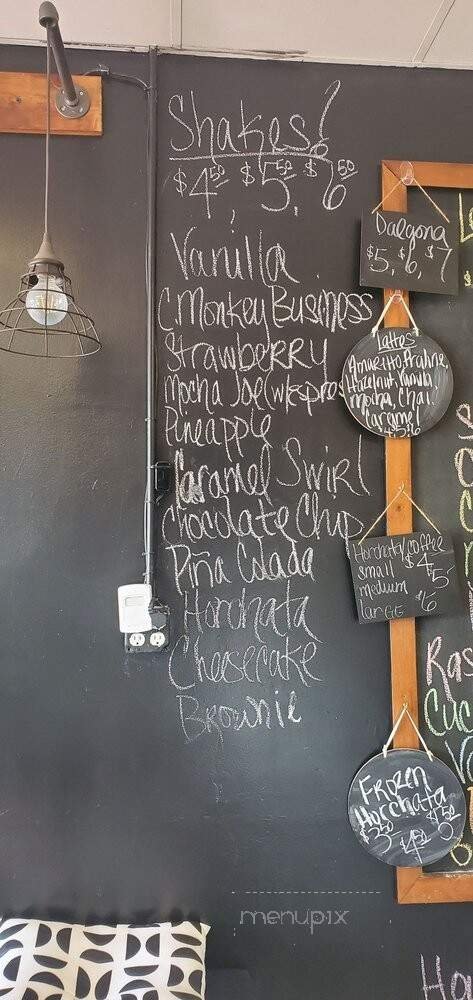 Shakes!
$4.50, $5.50, $6.50
Vanilla
C.Monkey Business
Strawberry
Mocha Joe (w/espres
Pineapple
Caramel Swirl
Chocolate Chip
Piña Colada
Horchata
Cheesecake
Brownie
Dalgona
$5, $6, $7
Lattes
Amaretto, Praline,
Hazelnut, Vanilla
Mocha, Chai,
Caramel
Horchata/coffee
small $4
medium $5
large $6
Frozen
Horchata
$3.50 $4.50 $5.50
Ras
Cuc
menupix